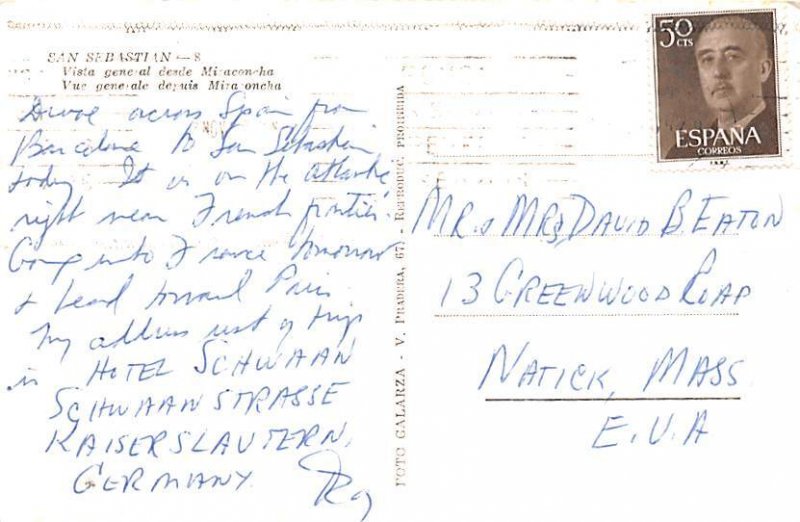 SAN SEBASTIAN — 8
Vista general desde Miraconcha
Vue generale depuis Miraconcha
Drove across Spain from
Barcelona to San Sebastian
today It is on the Atlantic
right near French frontier.
Going into France tomorrow
& head toward Paris.
My address rest of trip
is HOTEL SCHWAAN
SCHWAANSTRASSE
KAISERSLAUTERN,
GERMANY.
Ray
FOTO GALARZA - V. PRADERA, 67 - REPRODUC. PROHIBIDA
50
CTS
ESPAÑA
CORREOS
MR. & MRS DAVID B. EATON
13 GREENWOOD ROAD
NATICK, MASS.
E.U.A